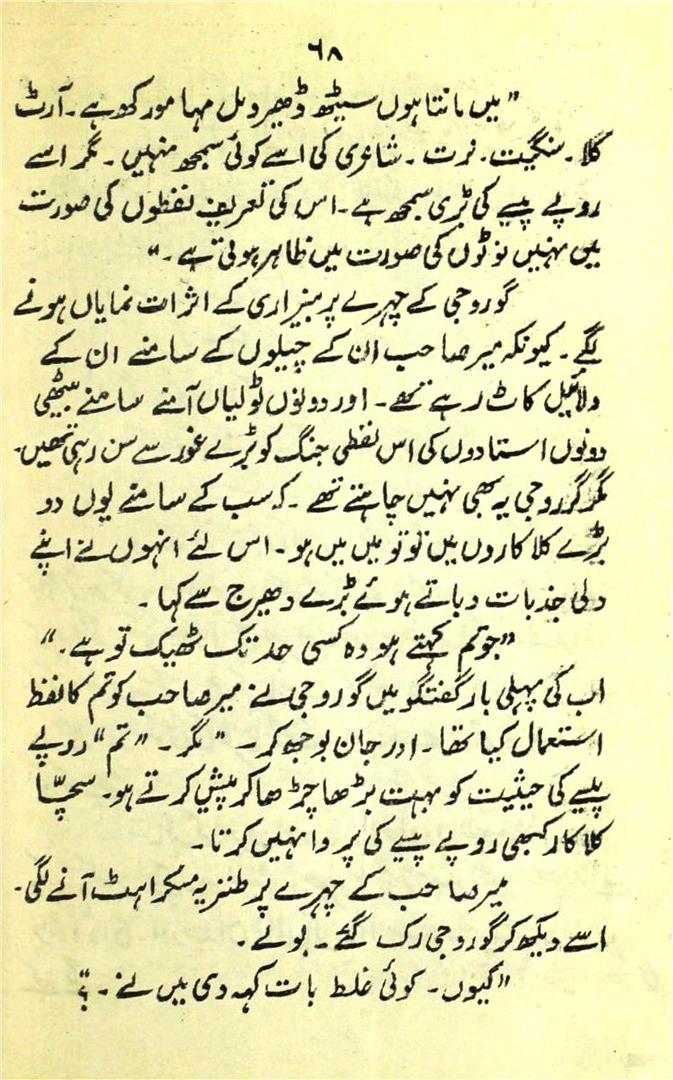 ۶۸
"میں مانتا ہوں سیٹھ ڈھیرومل مہا مورکھ ہے۔ آرٹ
کلا۔ سنگیت۔ نرت۔ شاعری کی اسے کوئی سمجھ نہیں۔ مگر اسے
روپے پیسے کی بڑی سمجھ ہے۔ اس کی تعریف لفظوں کی صورت
میں نہیں نوٹوں کی صورت میں ظاہر ہوتی ہے۔"
گوروجی کے چہرے پر بیزاری کے اثرات نمایاں ہونے
لگے۔ کیونکہ میر صاحب ان کے چیلوں کے سامنے ان کے
دلائیل کاٹ رہے تھے۔ اور دونوں ٹولیاں آمنے سامنے بیٹھی
دونوں استادوں کی اس لفظی جنگ کو بڑے غور سے سن رہی تھیں۔
مگر گوروجی یہ بھی نہیں چاہتے تھے۔ کہ سب کے سامنے یوں دو
بڑے کلاکاروں میں تو تو میں میں ہو۔ اس لئے انہوں نے اپنے
دلی جذبات دباتے ہوئے بڑے دھیرج سے کہا۔
"جو تم کہتے ہو وہ کسی حد تک ٹھیک تو ہے۔"
اب کی پہلی بار گفتگو میں گوروجی نے میر صاحب کو تم کا لفظ
استعمال کیا تھا۔ اور جان بوجھ کر۔ "مگر۔ "تم" روپے
پیسے کی حیثیت کو بہت بڑھا چڑھا کر پیش کرتے ہو۔ سچّا
کلاکار کبھی روپے پیسے کی پروا نہیں کرتا۔
میر صاحب کے چہرے پر طنزیہ مسکراہٹ آنے لگی۔
اسے دیکھ کر گوروجی رک گئے۔ بولے۔
"کیوں۔ کوئی غلط بات کہہ دی میں نے۔؟"